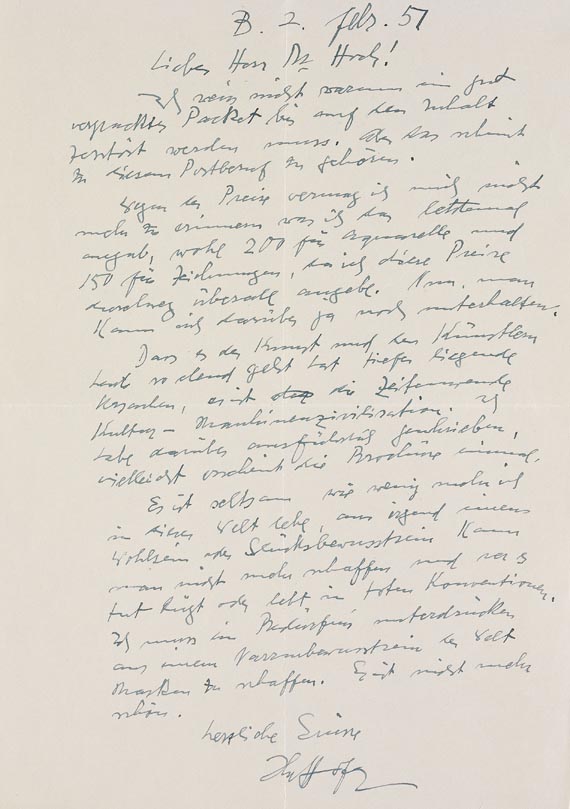 B. 2. Febr. 51
Lieber Herr Dr. Hoch!
Ich weiss nicht warum ein gut
verpacktes Packet bis auf den Inhalt
zerstört werden muss. Aber das scheint
zu diesem Postberuf zu gehören.
Wegen der Preise vermag ich mich nicht
mehr zu erinnern was ich das letztemal
angab, wohl 200 für Aquarelle und
150 für Zeichnungen, da ich diese Preise
durchweg überall angebe. Nun, man
kann sich darüber ja noch unterhalten.
Dass es der Kunst und den Künstlern
heute so elend geht hat tiefer liegende
Ursachen, es ist die Zeitenwende
Kultur - Maschinenzivilisation. Ich
habe darüber ausführlich geschrieben,
vielleicht erscheint die Broschüre einmal.
Es ist seltsam wie wenig mehr ich
in dieser Welt lebe, aus irgend einem
Wohlsein oder Glücksbewusstsein kann
man nicht mehr schaffen und wer es
tut lügt oder lebt in toten Konventionen.
Ich muss ein Bedürfnis unterdrücken
aus einem Narrenbewusstsein der Welt
Masken zu schaffen. Es ist nicht mehr
schön.
Herzliche Grüsse